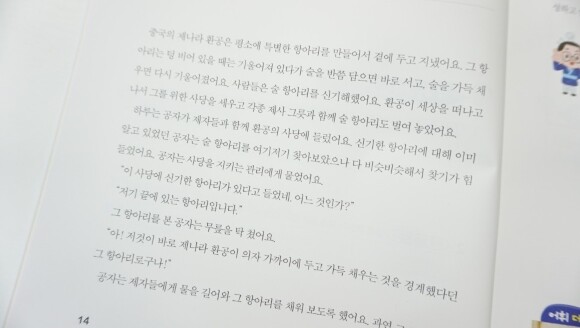 중국의 제나라 환공은 평소에 특별한 항아리를 만들어서 곁에 두고 지냈어요. 그 항
아리는 텅 비어 있을 때는 기울어져 있다가 술을 반쯤 담으면 바로 서고, 술을 가득 채
우면 다시 기울어졌어요. 사람들은 술 항아리를 신기해했어요. 환공이 세상을 떠나고
나서 그를 위한 사당을 세우고 각종 제사 그릇과 함께 술 항아리도 벌여 놓았어요.
하루는 공자가 제자들과 함께 환공의 사당에 들렀어요. 신기한 항아리에 대해 이미
알고 있었던 공자는 술 항아리를 여기저기 찾아보았으나 다 비슷비슷해서 찾기가 힘
들었어요. 공자는 사당을 지키는 관리에게 물었어요.
"이 사당에 신기한 항아리가 있다고 들었네. 어느 것인가?"
"저기 끝에 있는 항아리입니다."
그 항아리를 본 공자는 무릎을 탁 쳤어요.
"아! 저것이 바로 제나라 환공이 의자 가까이에 두고 가득 채우는 것을 경계했다던
그 항아리로구나!"
공자는 제자들에게 물을 길어와 그 항아리를 채워 보도록 했어요. 과연
14